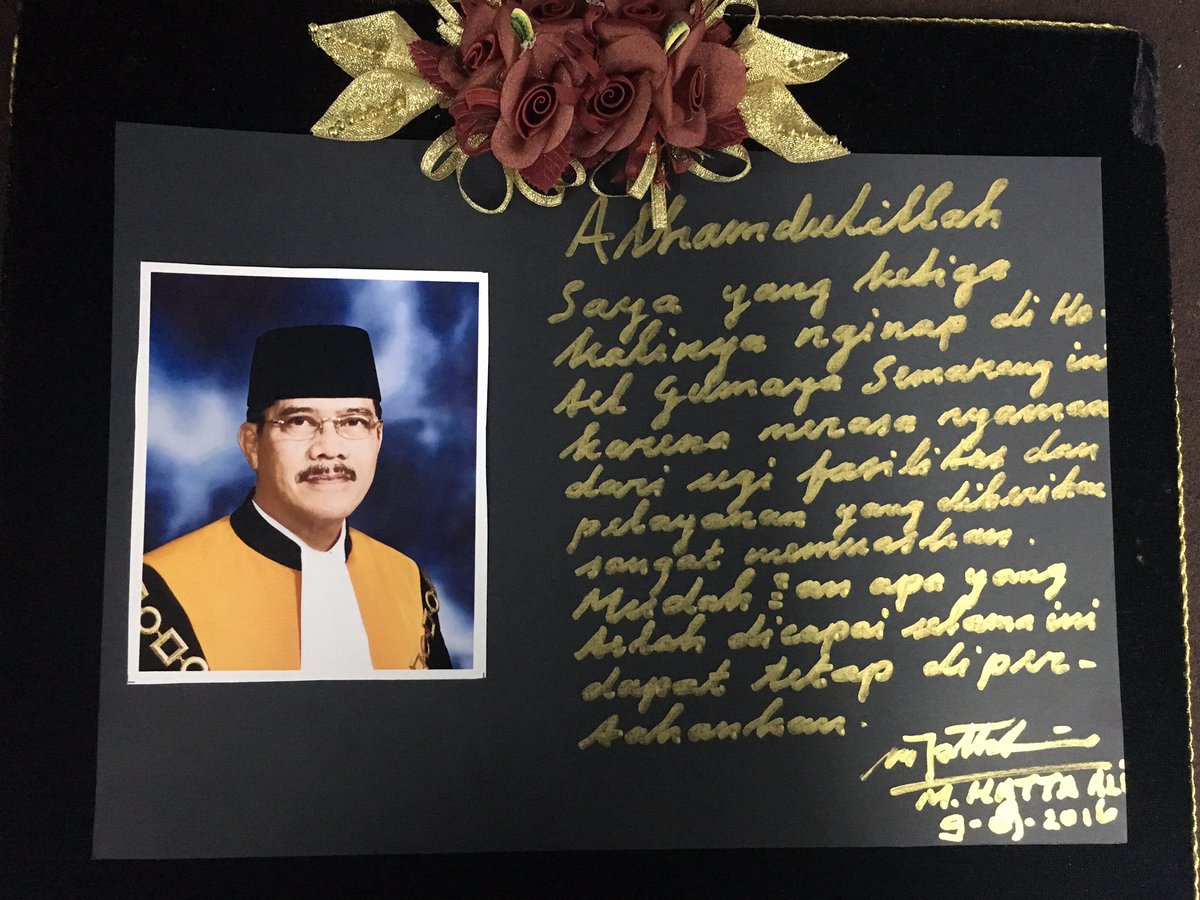 Alhamdulillah
Saya yang ketiga
kalinya nginap di Ho-
tel Gumaya Semarang ini
karena merasa nyaman
dari segi fasilitas dan
pelayanan yang diberikan
sangat memuaskan.
Mudah an apa yang
telah dicapai selama ini
dapat tetap diper-
tahankan.
M. HATTA ALI
2016